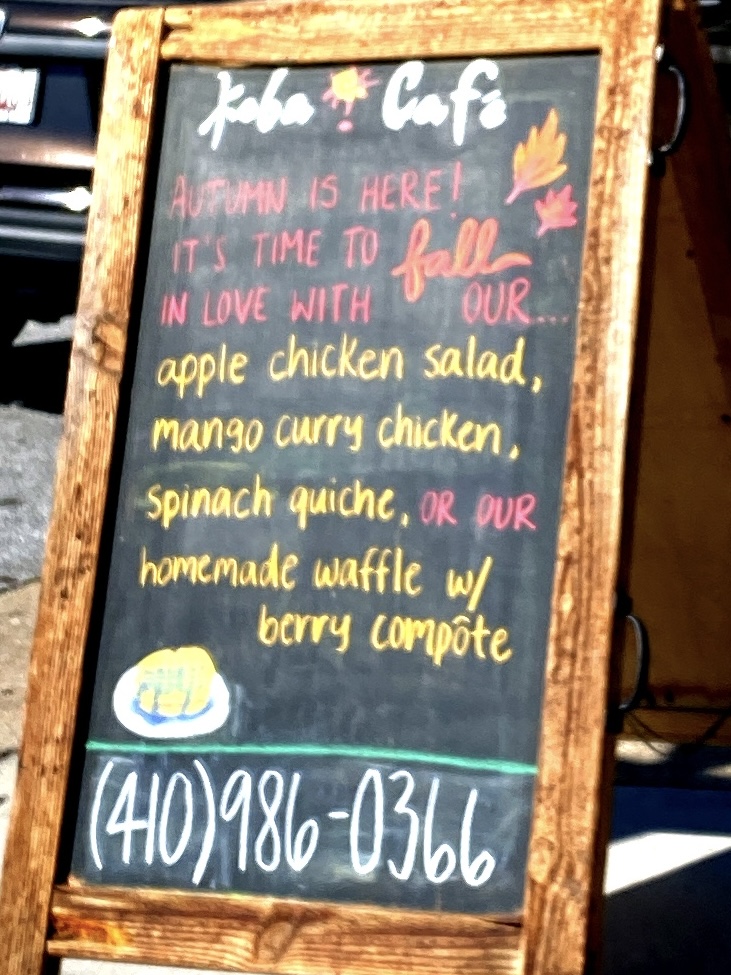 Koba Café
AUTUMN IS HERE!
IT'S TIME TO fall
IN LOVE WITH OUR...
apple chicken salad,
mango curry chicken,
spinach quiche, OR OUR
homemade waffle w/
berry compôte
(410)986-0366